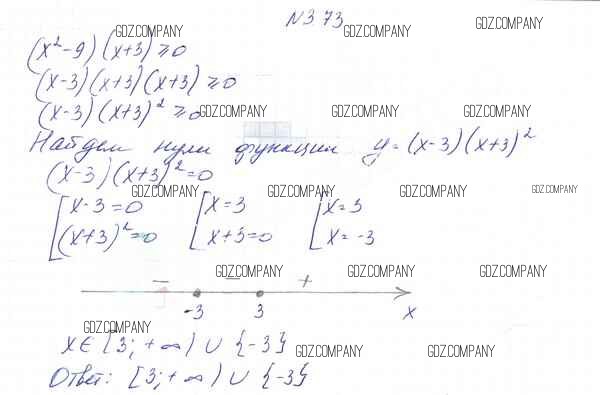 N373
GDZ.COMPANY GDZ.COMPANY GDZ.COMPANY
(x²-9)(x+3)≥0
(x-3)(x+3)(x+3)≥0
(x-3)(x+3)²≥0
GDZ.COMPANY GDZ.COMPANY GDZ.COMPANY
Найдем нули функции y=(x-3)(x+3)²
(x-3)(x+3)²=0
GDZ.COMPANY GDZ.COMPANY GDZ.COMPANY GDZ.COMPANY
[x-3=0 [x=3 [x=3
(x+3)²=0 x+3=0 x=-3
GDZ.COMPANY GDZ.COMPANY GDZ.COMPANY
− − +
-3 3 x
GDZ.COMPANY
x∈[3;+∞)∪{-3}
GDZ.COMPANY GDZ.COMPANY
Ответ: [3;+∞)∪{-3}